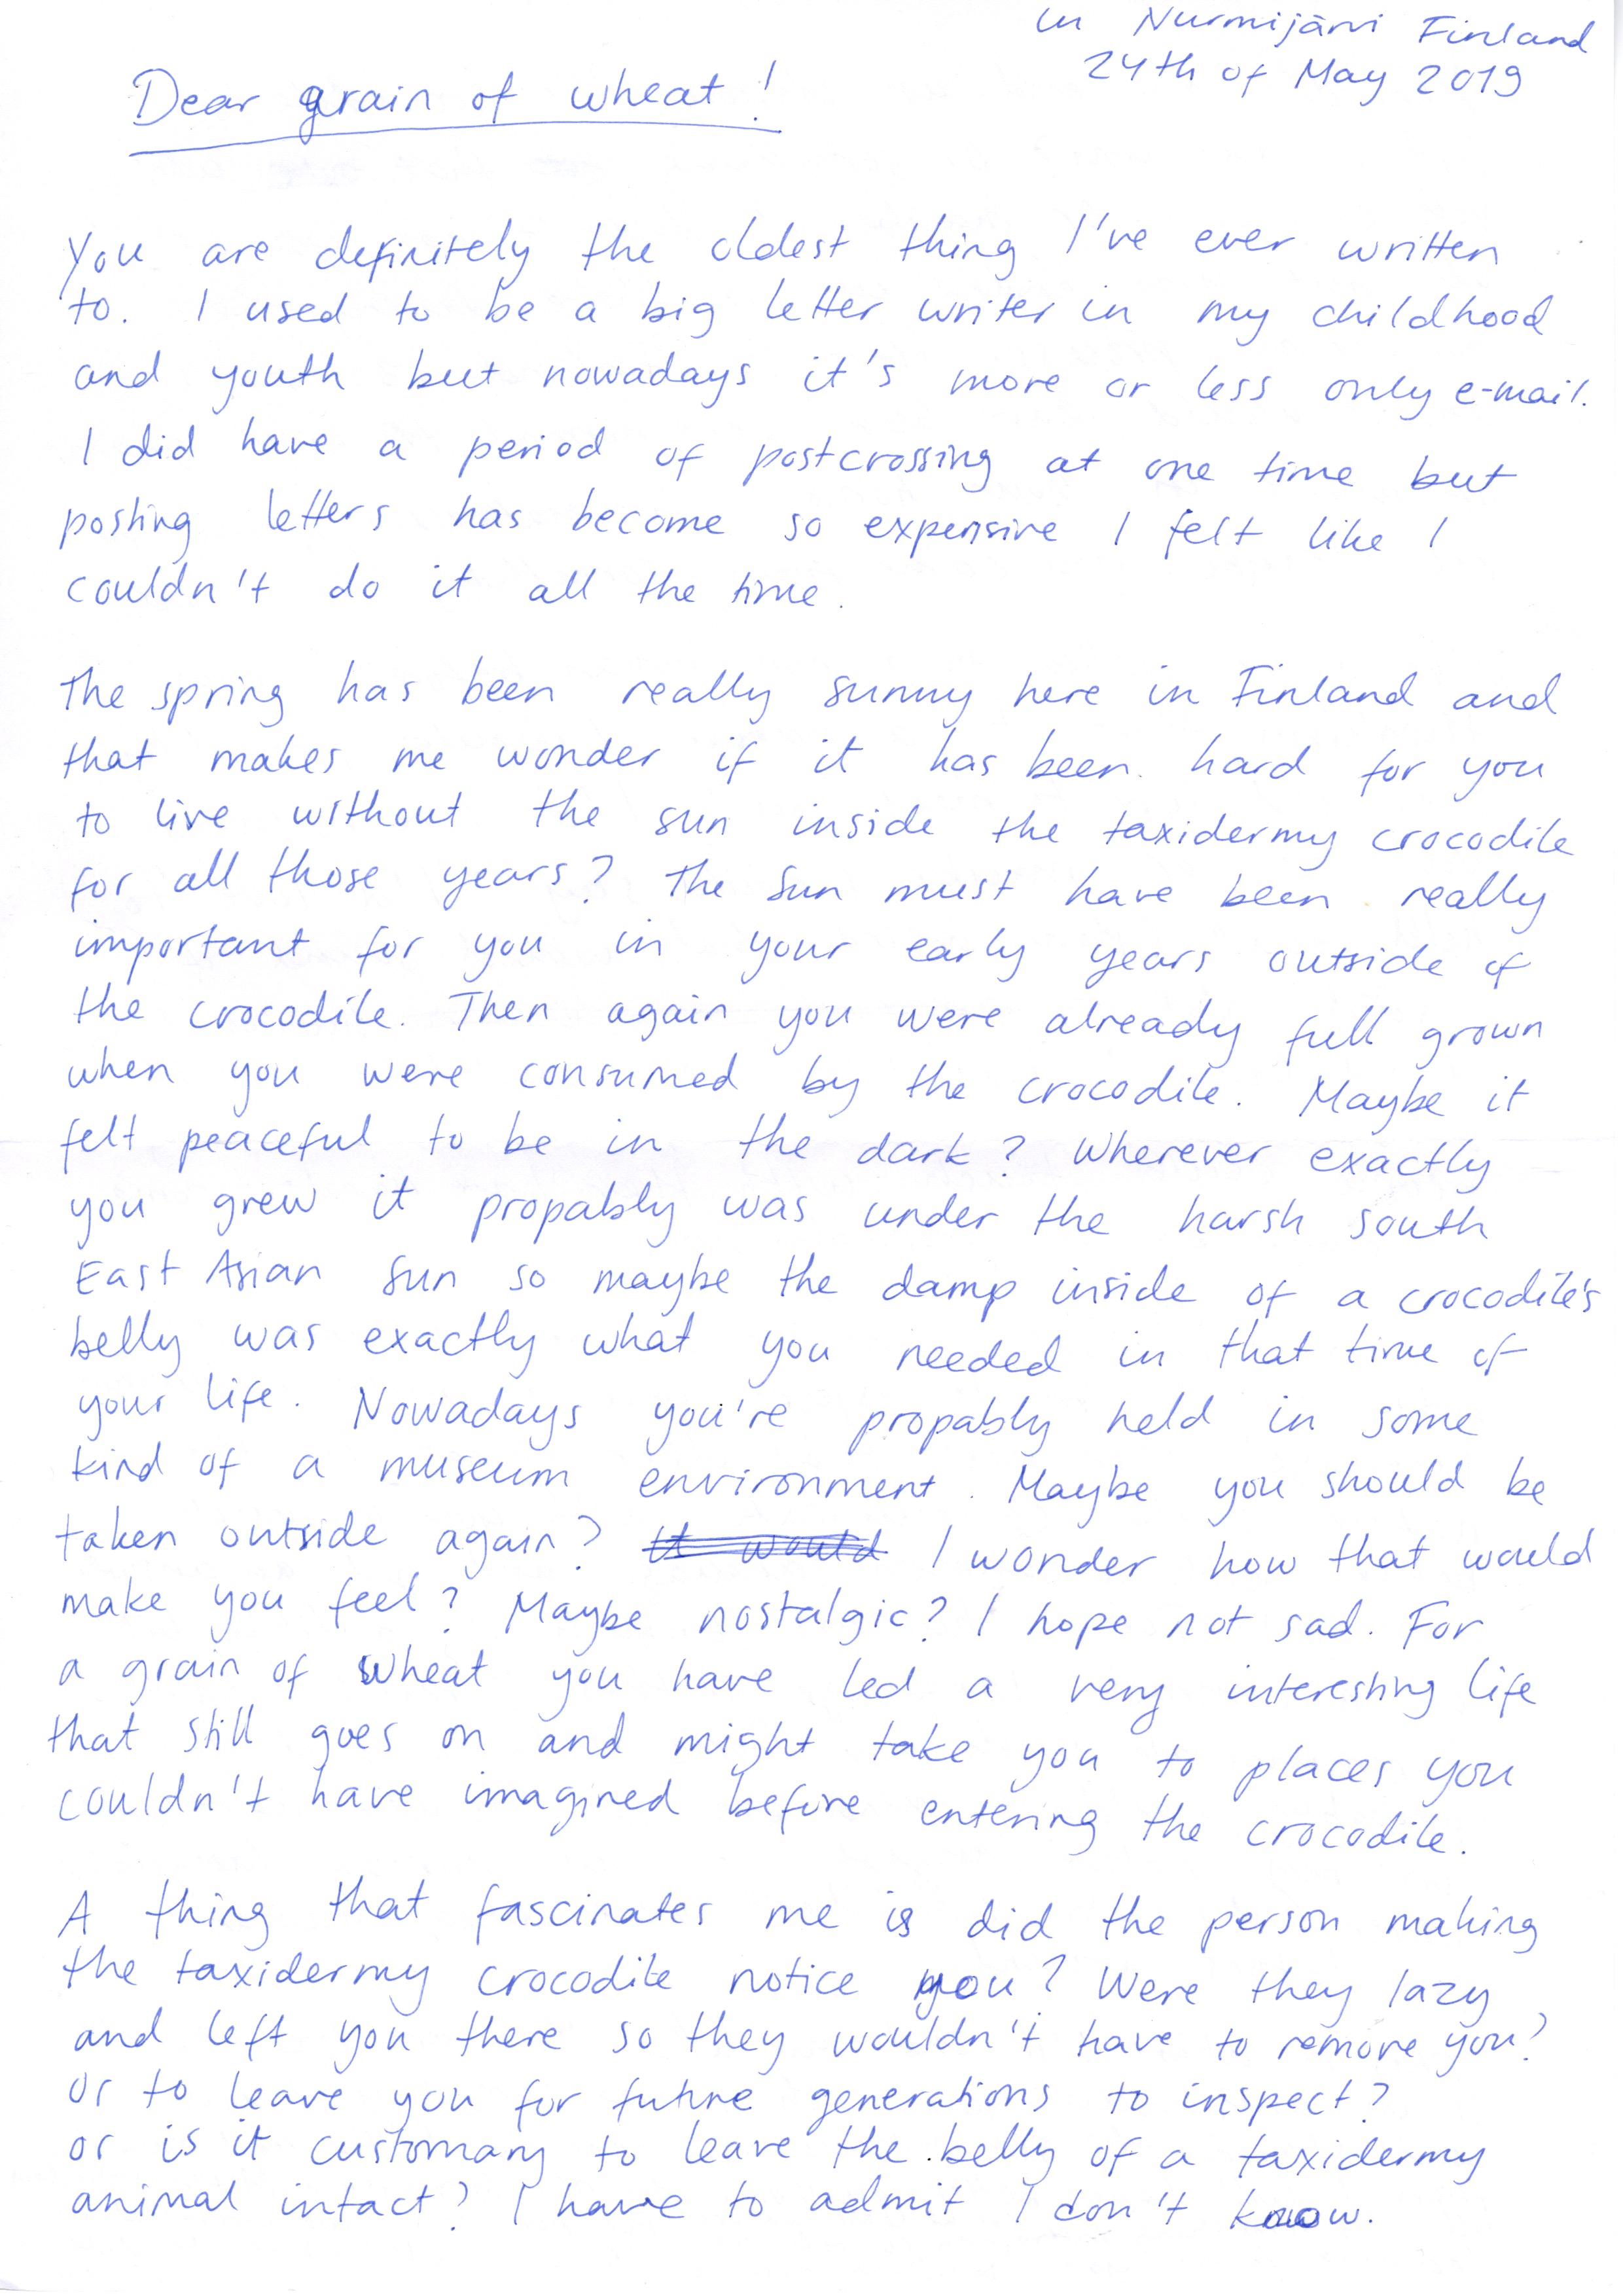 in Nurmijärvi Finland
24th of May 2019
Dear grain of wheat!
You are definitely the oldest thing I've ever written
to. I used to be a big letter writer in my childhood
and youth but nowadays it's more or less only e-mail.
I did have a period of postcrossing at one time but
posting letters has become so expensive I felt like I
couldn't do it all the time.
The spring has been really sunny here in Finland and
that makes me wonder if it has been hard for you
to live without the sun inside the taxidermy crocodile
for all those years? The sun must have been really
important for you in your early years outside of
the crocodile. Then again you were already full grown
when you were consumed by the crocodile. Maybe it
felt peaceful to be in the dark? Wherever exactly
you grew it propably was under the harsh south
East Asian sun so maybe the damp inside of a crocodile's
belly was exactly what you needed in that time of
your life. Nowadays you're propably held in some
kind of a museum environment. Maybe you should be
taken outside again? It would I wonder how that would
make you feel? Maybe nostalgic? I hope not sad. For
a grain of wheat you have led a very interesting life
that still goes on and might take you to places you
couldn't have imagined before entering the crocodile.
A thing that fascinates me is did the person making
the taxidermy crocodile notice you? Were they lazy
and left you there so they wouldn't have to remove you?
Or to leave you for future generations to inspect?
or is it customary to leave the belly of a taxidermy
animal intact? I have to admit I don't know.